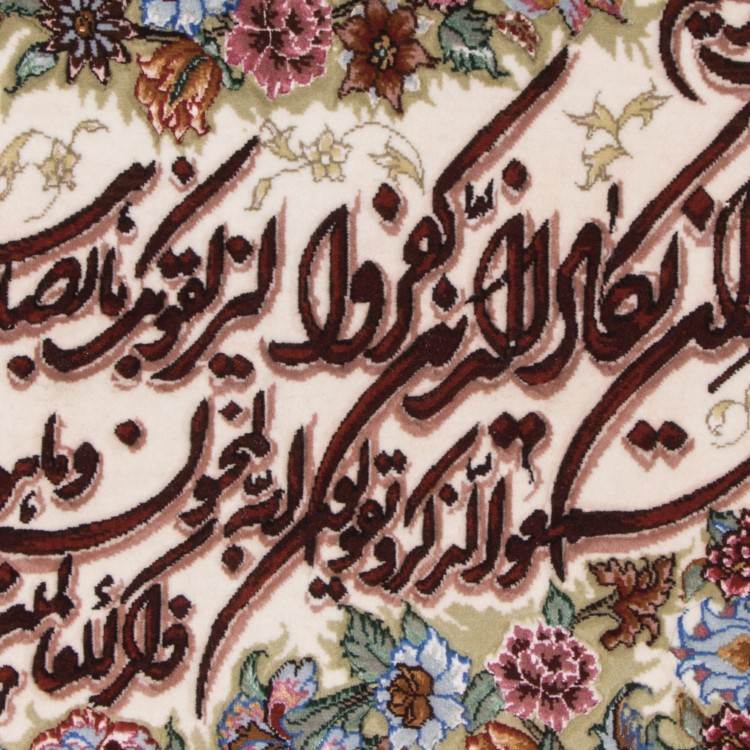 ان یکاد الذین کفروا لیزلقونک بابصا
سمعوا الذکر و یقولون انه لمجنون و ما هو
ذکر للعالمین